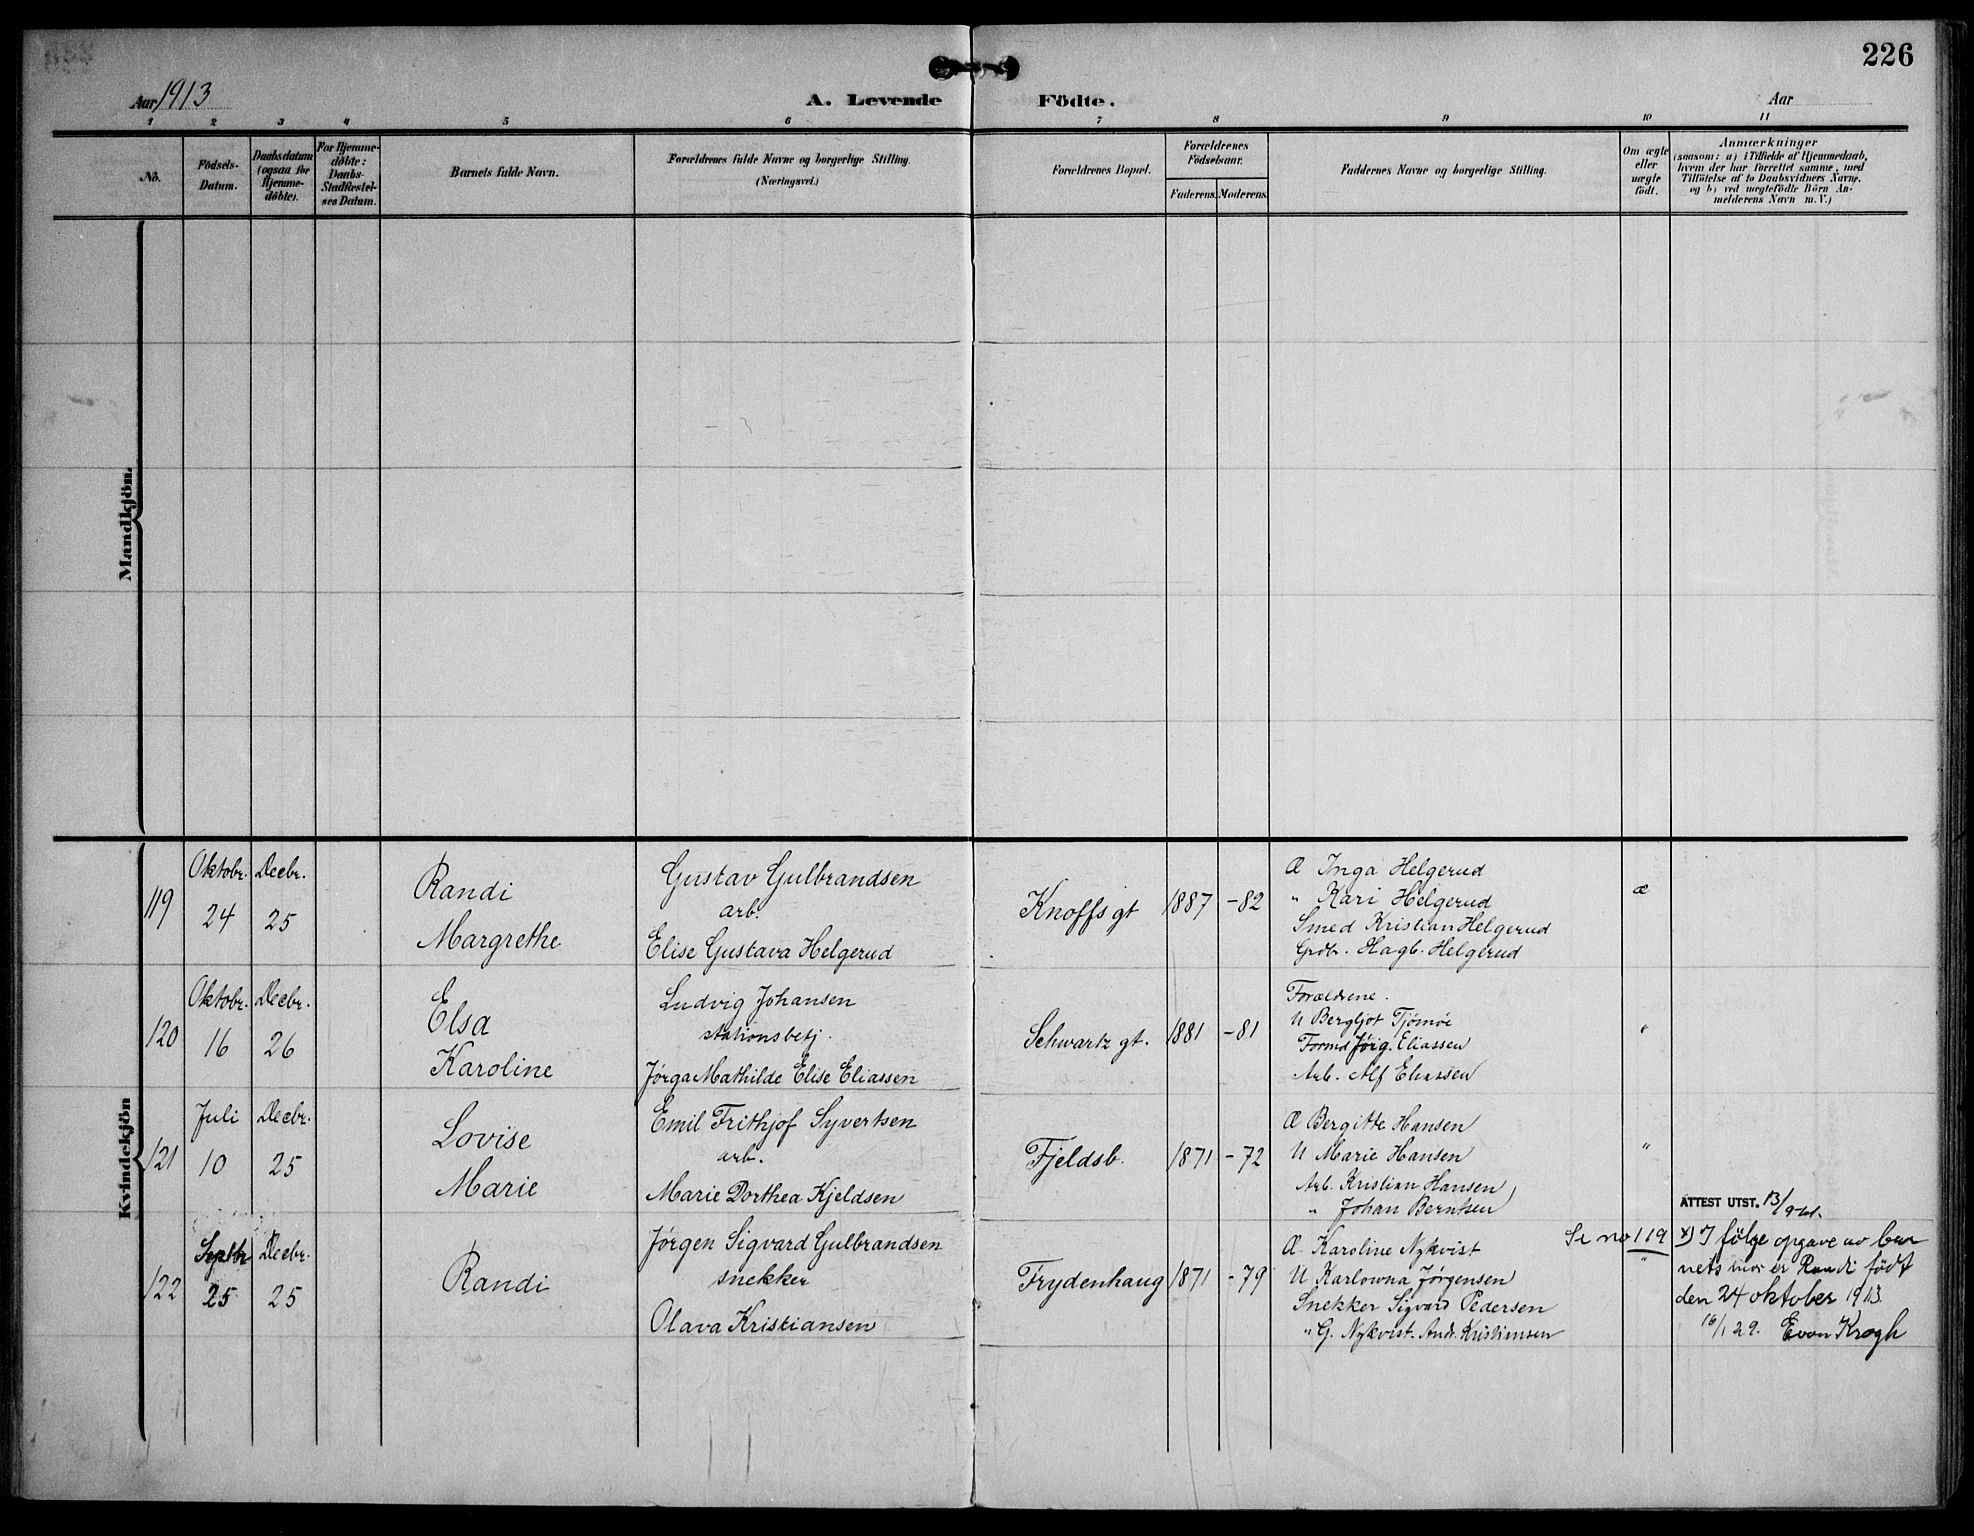 226
Aar 1913
A. Levende Födte.
Aar
1 2 3 4 5 6 7 8 9 10 11
Nö.
Födsels-
Datum.
Daabsdatum
(ogsaa for
Hjemme-
döbte).
For Hjemme-
döbte:
Daabs-
Stadfæstel-
ses Datum.
Barnets fulde Navn.
Forældrenes fulde Navne og borgerlige Stilling.
(Næringsvei.)
Forældrenes Bopæl.
Forældrenes
Födselsaar.
Faderens. Moderens.
Faddernes Navne og borgerlige Stilling.
Om ægte
eller
uægte
födt.
Anmærkninger
(saasom: a) i Tilfælde af Hjemmedaab,
hvem der har forrettet samme, med
Tilföielse af to Daabsvidners Navne,
og b) ved uægtefödte Börn An-
melderens Navn m. V.)
Mandkjön.
Kvindekjön
119
Oktobr.
24
Decbr.
25
Randi
Margrethe
Gustav Gulbrandsen
arb.
Elise Gustava Helgerud
Knoffs gt
1887 - 82
Æ Inga Helgerud
" Kari Helgerud
Smed Kristian Helgerud
Grdbr. Hagb. Helgerud
æ
120
Oktobr.
16
Decbr.
26
Elsa
Karoline
Ludvig Johansen
stationsbetj.
Jørga Mathilde Elise Eliassen
Schwartz gt.
1881 - 81
Forældrene.
U Bergljot Tjömöe
Formd Jørg. Eliassen
Arb. Alf Eliassen
"
121
Juli
10
Decbr.
25
Lovise
Marie
Emil Frithjof Syvertsen
arb.
Marie Dorthea Kjeldsen
Fjeldsb.
1871 - 72
Æ Bergitte Hansen
U Marie Hansen
Arb. Kristian Hansen
" Johan Berntsen
"
ATTEST UTST. 13/9
122
Septbr
25
Decbr.
25
Randi
Jørgen Sigvard Gulbrandsen
snekker
Olava Kristiansen
Frydenhaug
1871 - 79
Æ. Karoline Nykvist
U Karlowna Jørgensen
Snekker Sigvard Pedersen
" G. Nykvist. Andr. Kristiansen
Se no 119
"
x) I følge opgave av bar
nets mor er Randi født
den 24 oktober 1913.
16/1 29. Even Krogh